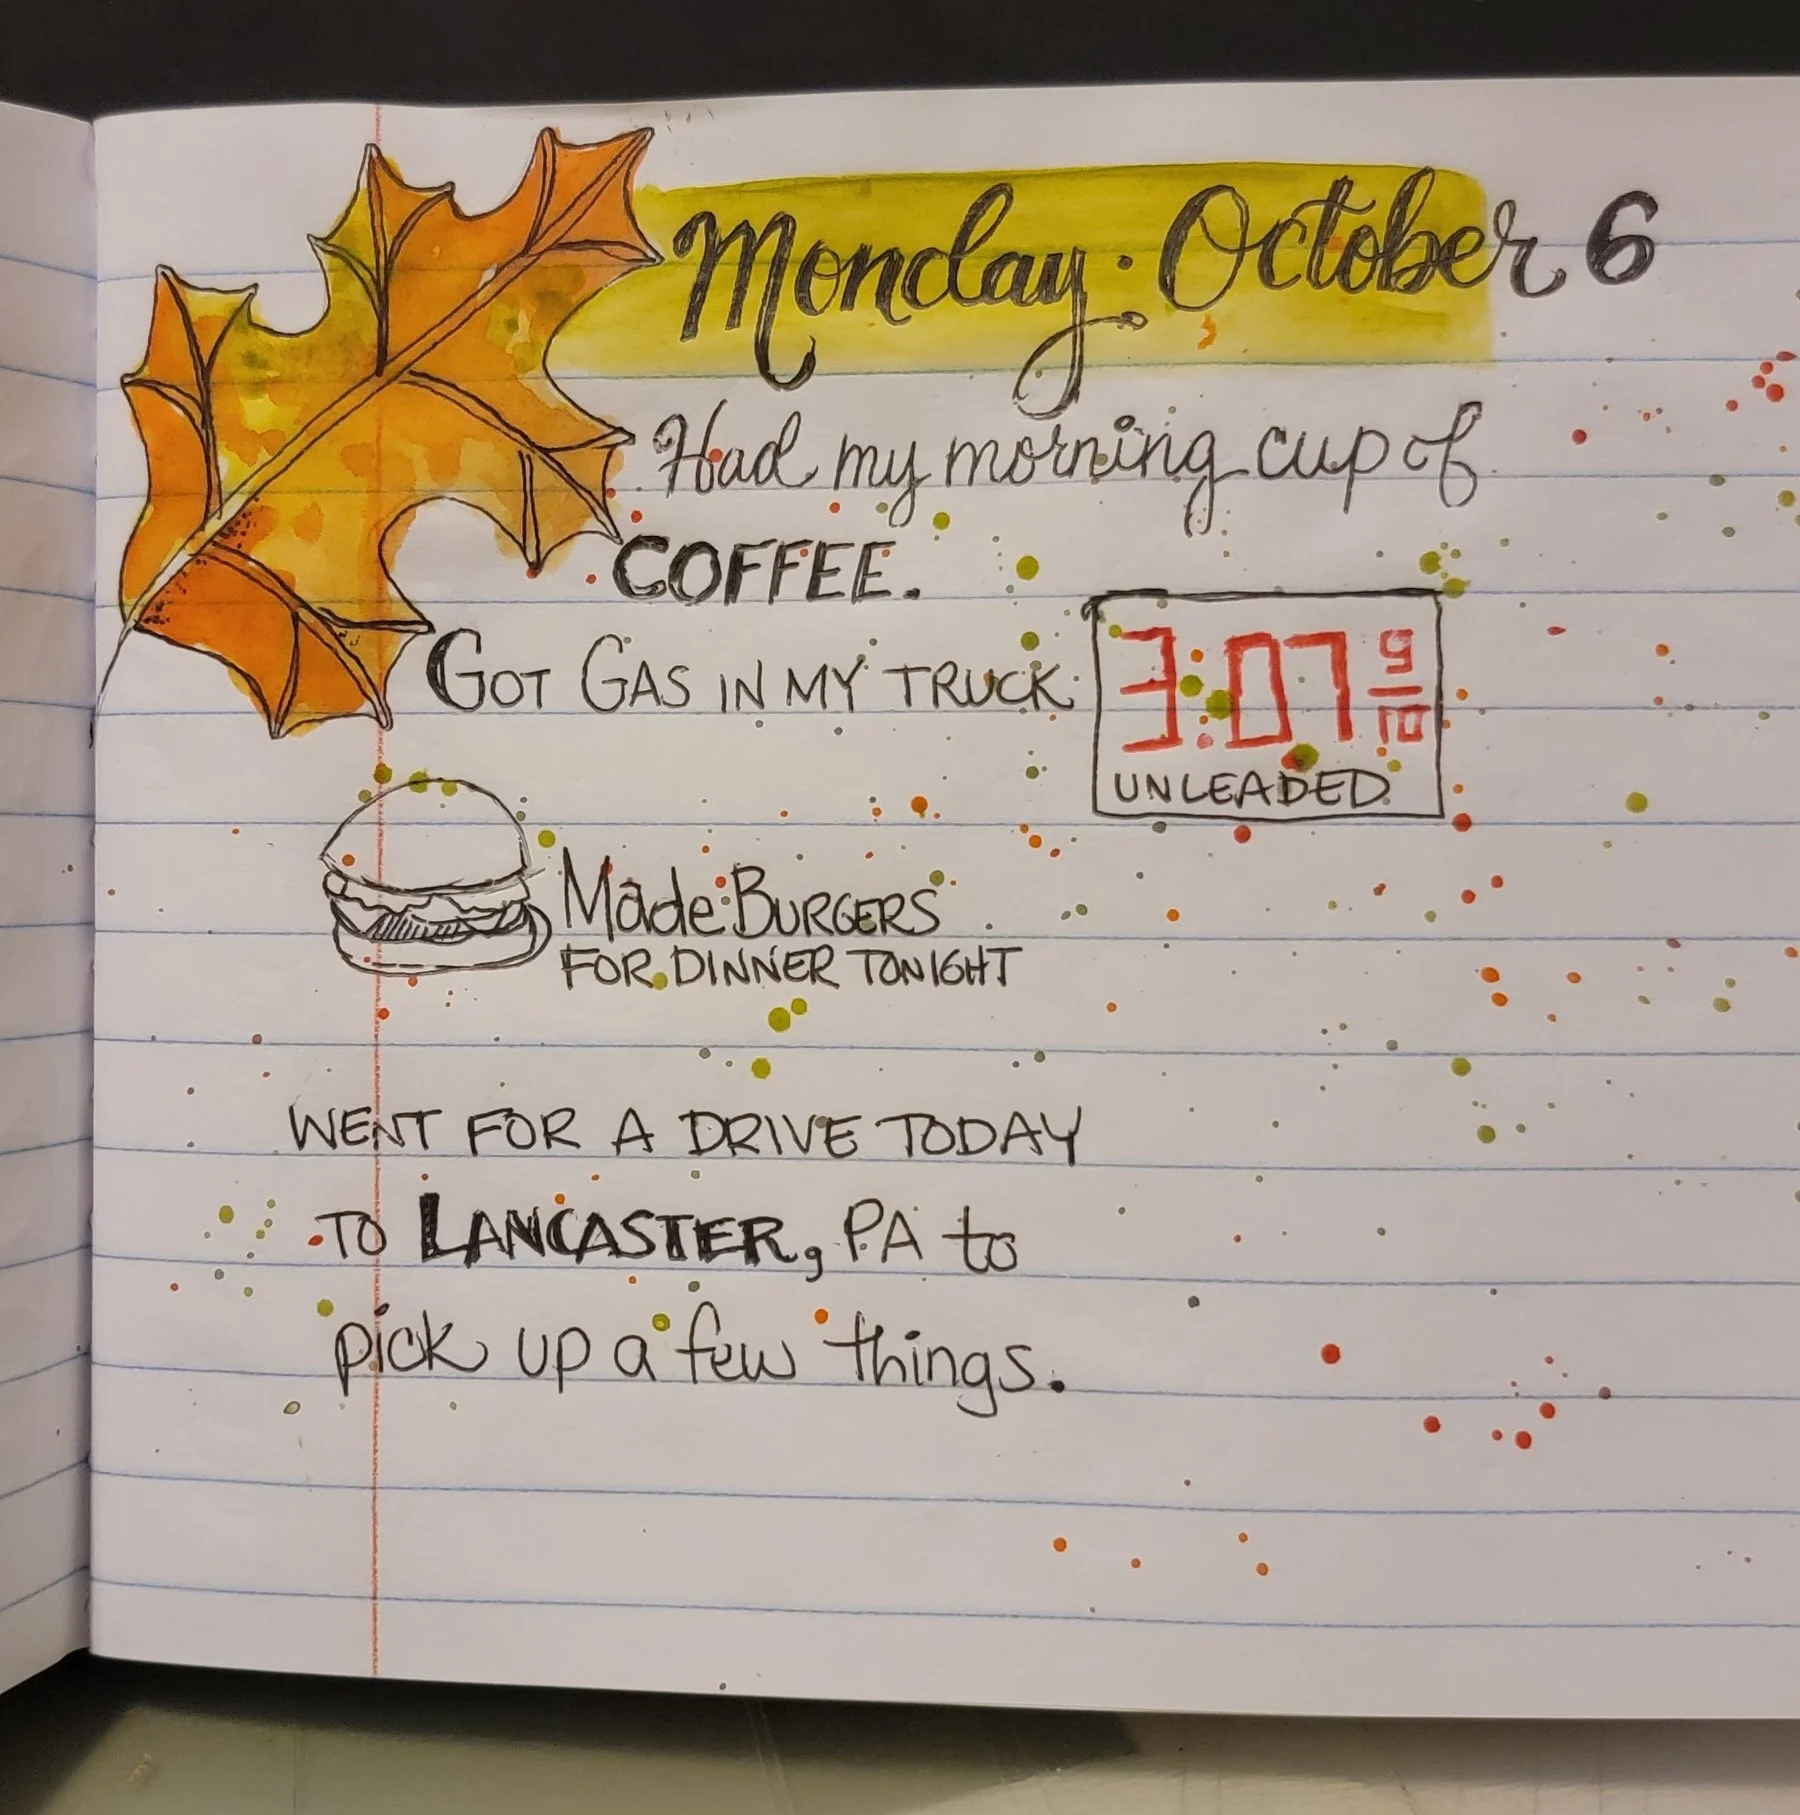 Monday · October 6
Had my morning cup of
COFFEE.
GOT GAS IN MY TRUCK
3.07 9/10
UNLEADED
Made BURGERS
FOR DINNER TONIGHT
WENT FOR A DRIVE TODAY
TO LANCASTER, PA to
pick up a few things.